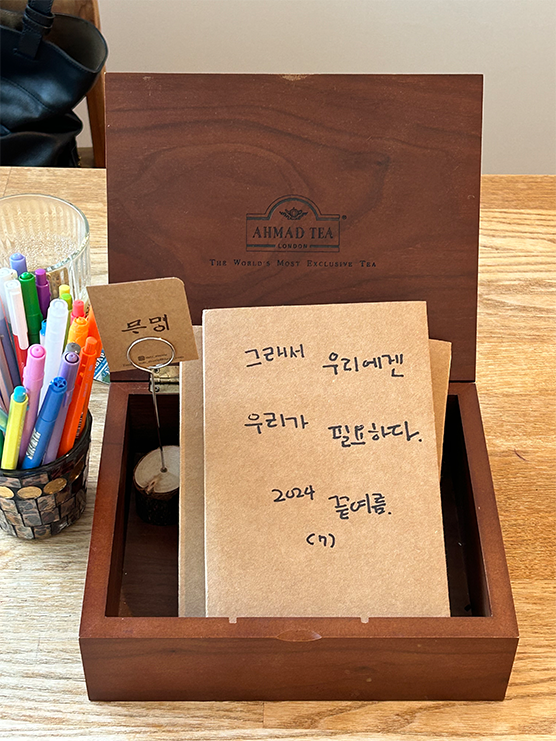 AHMAD TEA
LONDON
THE WORLD'S MOST EXCLUSIVE TEA
문명
그래서 우리에겐
우리가 필요하다.
2024 끝여름.
(7)